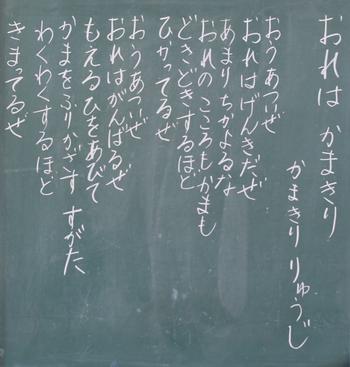 おれは かまきり
かまきり りゅうじ
おうあついぜ
おれはげんきだぜ
あまりちかよるな
おれのこころもかまも
どきどきするほど
ひかってるぜ
おうあついぜ
おれはがんばるぜ
もえるひをあびて
かまをふりかざす すがた
わくわくするほど
きまってるぜ